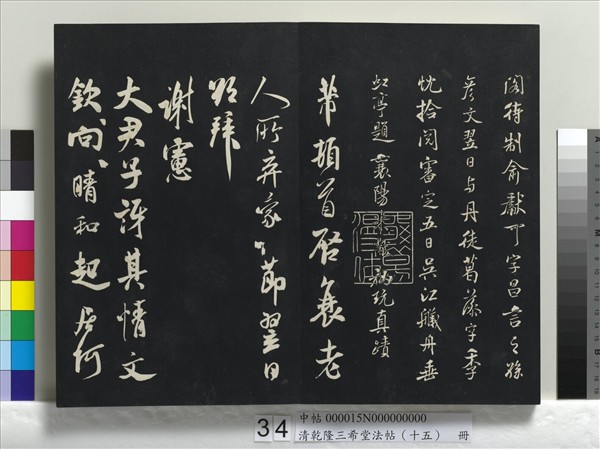 閣待制俞獻可字昌言之孫
彥文翌日與丹徒葛藻字季
忱拾閱審定五日吳江艤舟垂
虹亭題 襄陽 秘玩真蹟
芾頓首啓衰老
人所弃 節翌日
拜
謝憲
大尹子訝其情文
欽向向晴和起居何
34
中帖 000015N000000000
清乾隆三希堂法帖（十五） 冊